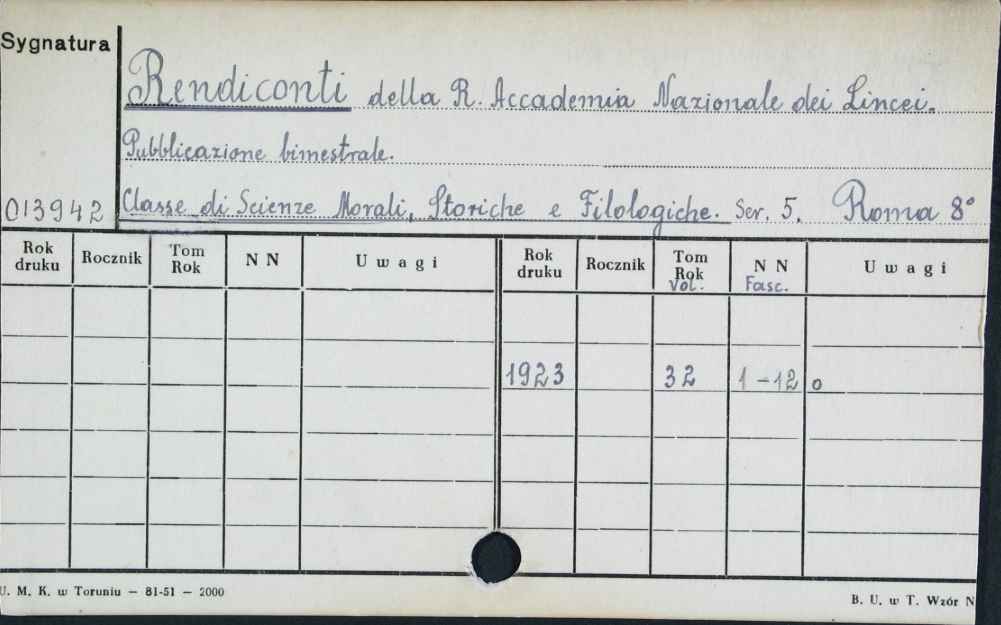 Sygnatura
Rendiconti della R. Accademia Nazionale dei Lincei.
Pubblicazione bimestrale.
013942 Classe di Scienze Morali, Storiche e Filologiche. Ser. 5. Roma 8°
Rok druku Rocznik Tom Rok NN Uwagi Rok druku Rocznik Tom Rok Vol. NN Fasc. Uwagi
1923 32 1-12 o
U. M. K. w Toruniu — 81-51 — 2000
B. U. w T. Wzór N